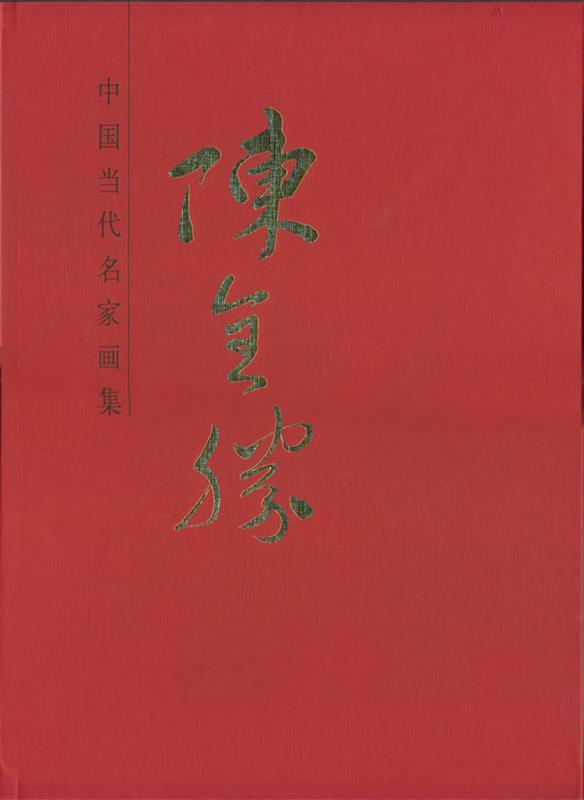 中国当代名家画集
陳全勝